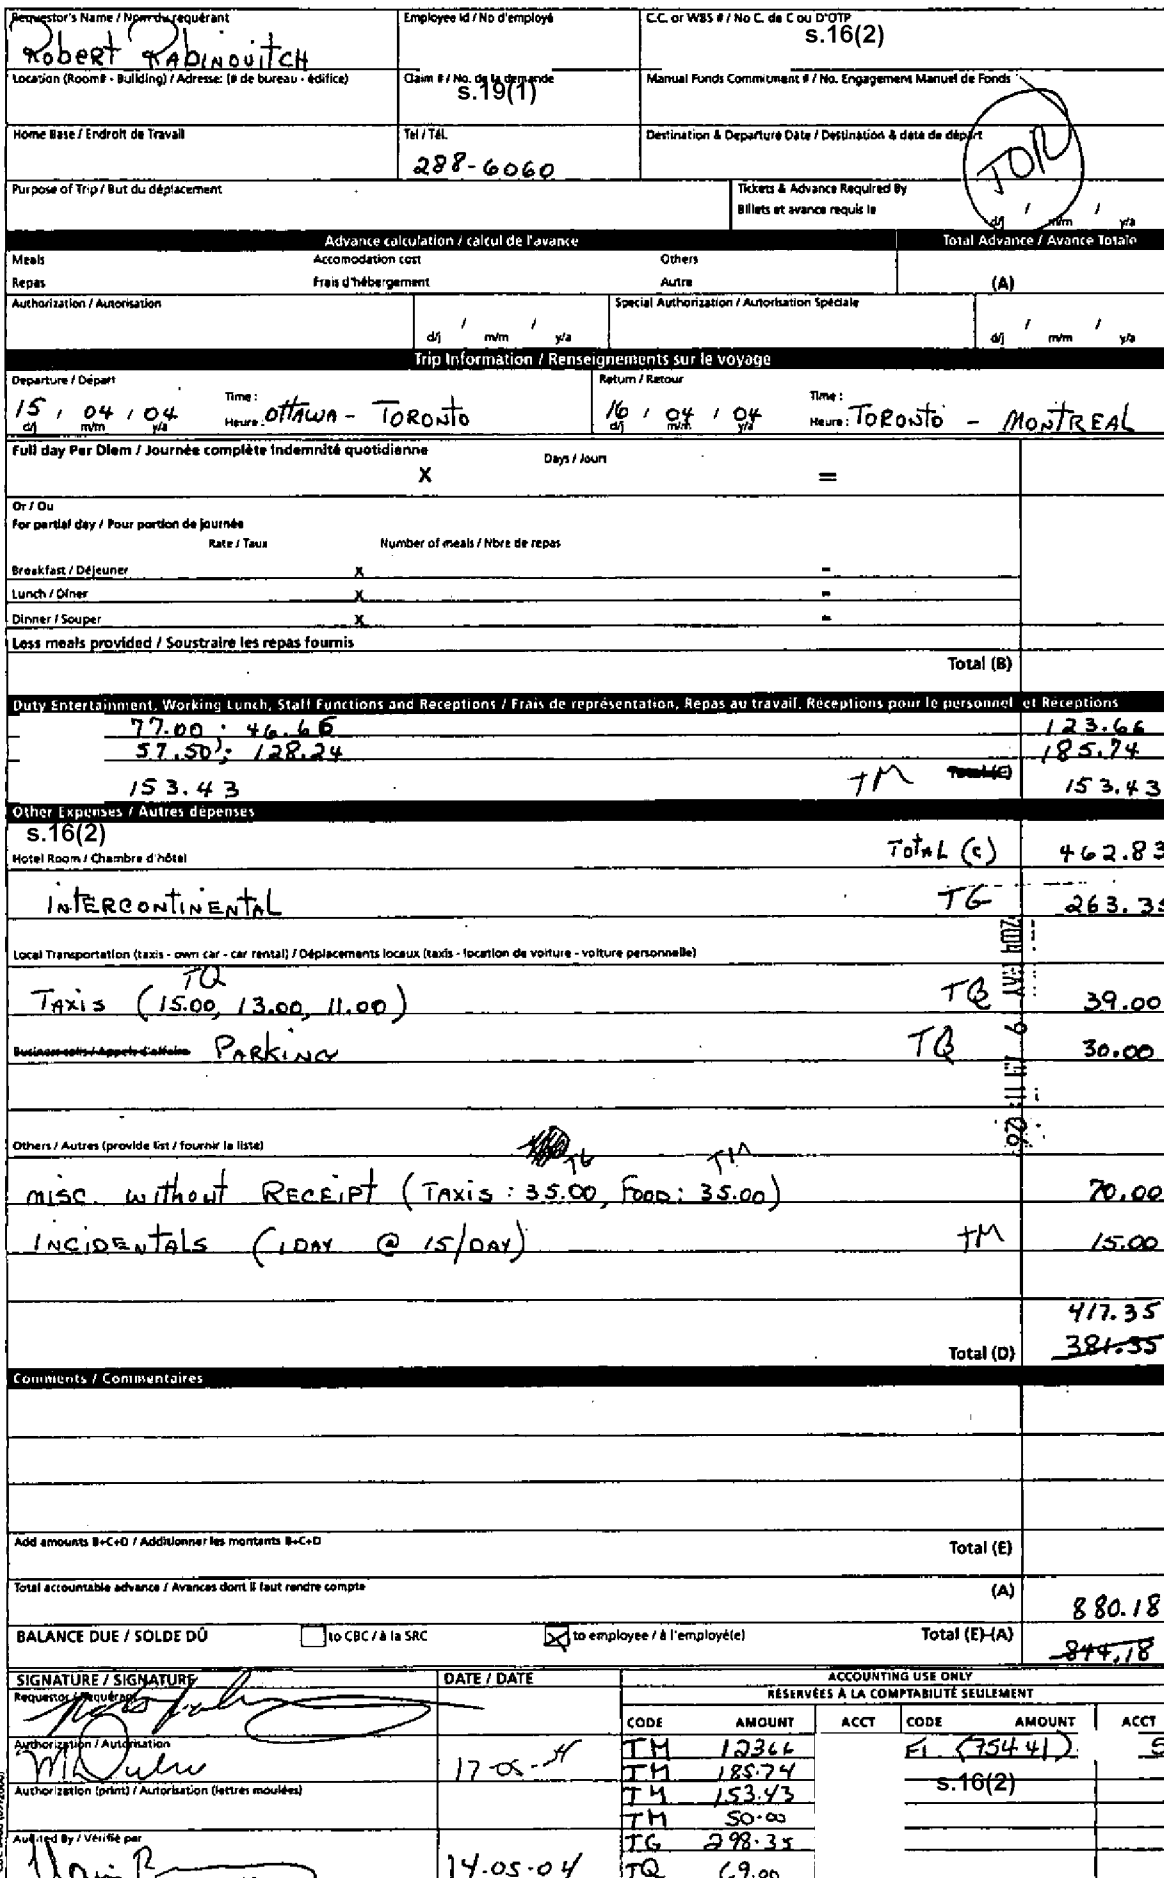 Requestor's Name / Nom du requérant
Employee Id / No d'employé
C.C. or WBS # / No C. de C ou D'OTP
Robert RABINOVITCH
s.16(2)
Location (Room# - Building) / Adresse: (# de bureau - édifice)
Claim # / No. de la demande
Manual Funds Commitment # / No. Engagement Manuel de Fonds
s.19(1)
Home Base / Endroit de Travail
Tel / Tél.
Destination & Departure Date / Destination & date de départ
288-6060
TOR
Purpose of Trip / But du déplacement
Tickets & Advance Required By
Billets et avance requis le
d/j / m/m / y/a
Advance calculation / calcul de l'avance
Total Advance / Avance Totale
Meals Accomodation cost Others
Repas Frais d'hébergement Autre (A)
Authorization / Autorisation
Special Authorization / Autorisation Spéciale
d/j / m/m / y/a
d/j / m/m / y/a
Trip Information / Renseignements sur le voyage
Departure / Départ
Return / Retour
Time :
Time :
15 / 04 / 04 Heure : OTTAWA - TORONTO
16 / 04 / 04 Heure : TORONTO - MONTREAL
d/j m/m y/a
d/j m/m y/a
Full day Per Diem / Journée complète indemnité quotidienne
Days / Jours
X =
Or / Ou
For partial day / Pour portion de journée
Rate / Taux Number of meals / Nbre de repas
Breakfast / Déjeuner x =
Lunch / Dîner x =
Dinner / Souper x =
Less meals provided / Soustraire les repas fournis
Total (B)
Duty Entertainment, Working Lunch, Staff Functions and Receptions / Frais de représentation, Repas au travail, Réceptions pour le personnel et Réceptions
77.00 ; 46.66 123.66
57.50 ; 128.24 185.74
153.43 TM Total (C) 153.43
Other Expenses / Autres dépenses
s.16(2)
Hotel Room / Chambre d'hôtel
TOTAL (c) 462.83
INTERCONTINENTAL TG 263.35
Local Transportation (taxis - own car - car rental) / Déplacements locaux (taxis - location de voiture - voiture personnelle)
TQ
TAXIS (15.00, 13.00, 11.00) TQ 39.00
Business calls / Appels d'affaire PARKING TQ 30.00
Others / Autres (provide list / fournir la liste)
TG TM
MISC. without RECEIPT (TAXIS : 35.00, FOOD : 35.00) 70.00
INCIDENTALS (1 DAY @ 15/DAY) TM 15.00
417.35
Total (D) 381.35
Comments / Commentaires
Add amounts B+C+D / Additionner les montants B+C+D
Total (E)
Total accountable advance / Avances dont il faut rendre compte
(A)
880.18
BALANCE DUE / SOLDE DÛ to CBC / à la SRC to employee / à l'employé(e) Total (E)-(A)
844.18
SIGNATURE / SIGNATURE DATE / DATE
ACCOUNTING USE ONLY
RÉSERVÉES À LA COMPTABILITÉ SEULEMENT
Requestor / Requérant
CODE AMOUNT ACCT CODE AMOUNT ACCT
Authorization / Autorisation
TM 123.66 (754.41)
17-05-04
TM 185.74
s.16(2)
Authorization (print) / Autorisation (lettres moulées)
TM 153.43
TM 50.00
Audited By / Vérifié par
TG 298.35
14.05.04 TQ 69.00